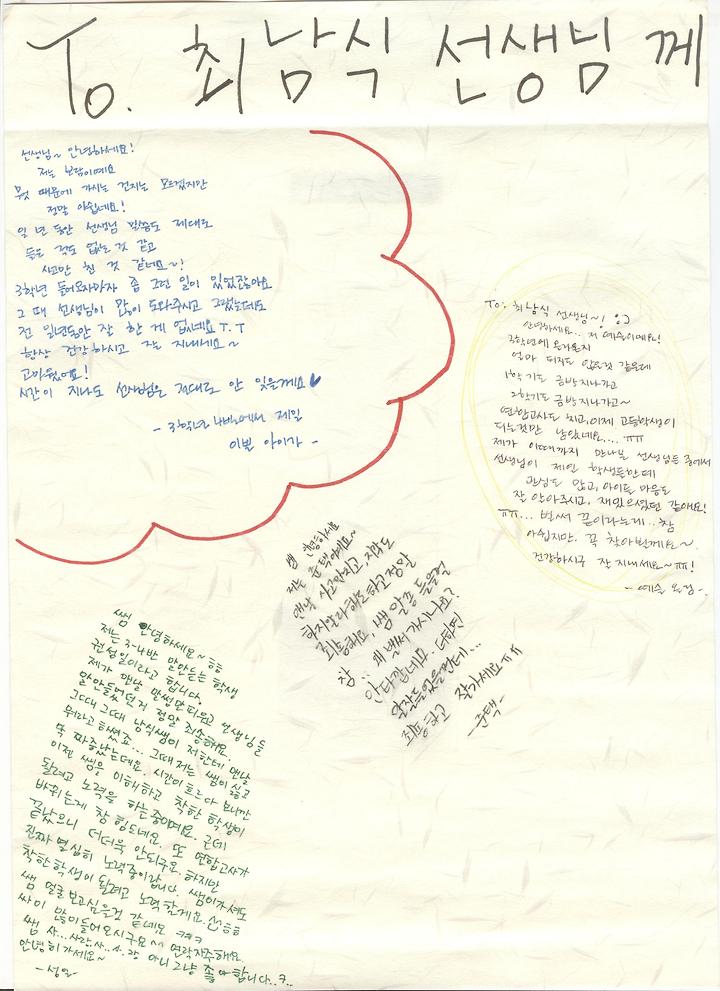 To. 최남식 선생님 께
선생님~ 안녕하세요!
저는 보람이예요
뭣 때문에 가시는 건지는 모르겠지만
정말 아쉽네요!
일 년 동안 선생님 말씀도 제대로
들을 적도 없는 것 같고
사고만 친 것 같네요~!
3학년 들어오자마자 좀 그런 일이 있었잖아요
그 때 선생님이 많이 도와주시고 그랬는데도
전 일년동안 잘 한 게 없네요 T.T
항상 건강하시고 잘 지내세요~
고마웠어요!
시간이 지나도 선생님은 절대로 안 잊을께요♥
- 3학년 나반에서 제일
이쁜 아이가 -
To. 최남식 선생님~! :)
안녕하세요.. 저 예슬이에요!
3학년에 올라온지
얼마 되지도 않은것 같은데
1학기도 금방지나가고
2학기도 금방지나가고~
연합고사도 치고, 이제 고등학생이
되는것만 남았네요... ㅠㅠ
제가 이때까지 만나본 선생님들 중에서
선생님이 제일 학생들한테
관심도 많고, 아이들 마음도
잘 알아주시고, 재밌으셨던 같애요!
ㅠㅠ... 벌써 끝이라는게.. 참
아쉽지만. 꼭 찾아뵐께요~
건강하시구 잘 지내세요~ㅠ!
- 예슬 올림 -
쌤 안녕하세요
저는 준택이예요~
맨날 사고만치고, 지각도
하지말라해도하고 정말
죄송해요, 쌤 말씀 들을껄
참.. 왜 벌써 가시나요?
안타깝네요. 다되면
말잘들었을껀데...
죄송하고 잘가세요ㅠㅠ
-준택-
쌤 안녕하세요~ㅎㅎ
저는 3-나반 말안듣는 학생
권성일이라고 합니다.
제가 맨날 말썽만피우고 선생님들
말안들었던거 정말 죄송해요.
그때그때 남식쌤이 저한테 맨날
뭐라고 하셨죠... 그때 저는 쌤이 싫고
또 짜증났는데요. 시간이 흐르다 보니깐
이젠 쌤을 이해하고 착한 학생이
될려고 노력을 하는중이예요. 근데
바뀌는게 참 힘드네요. 또 연합고사가
끝났으니 더더욱 안되구요. 하지만
진짜 열심히 노력중이랍니다. 쌤이가셔도
착한학생이 될려고 노력할게요.
쌤 얼굴보고싶을것 같네요 ㅋㅋㅋ
싸이 많이들어오시구요^^ 연락자주해요
쌤 사...사랑.사..사.랑 아니 그냥 좋아합니다..ㅋ..
안녕히가세요~
-성일-